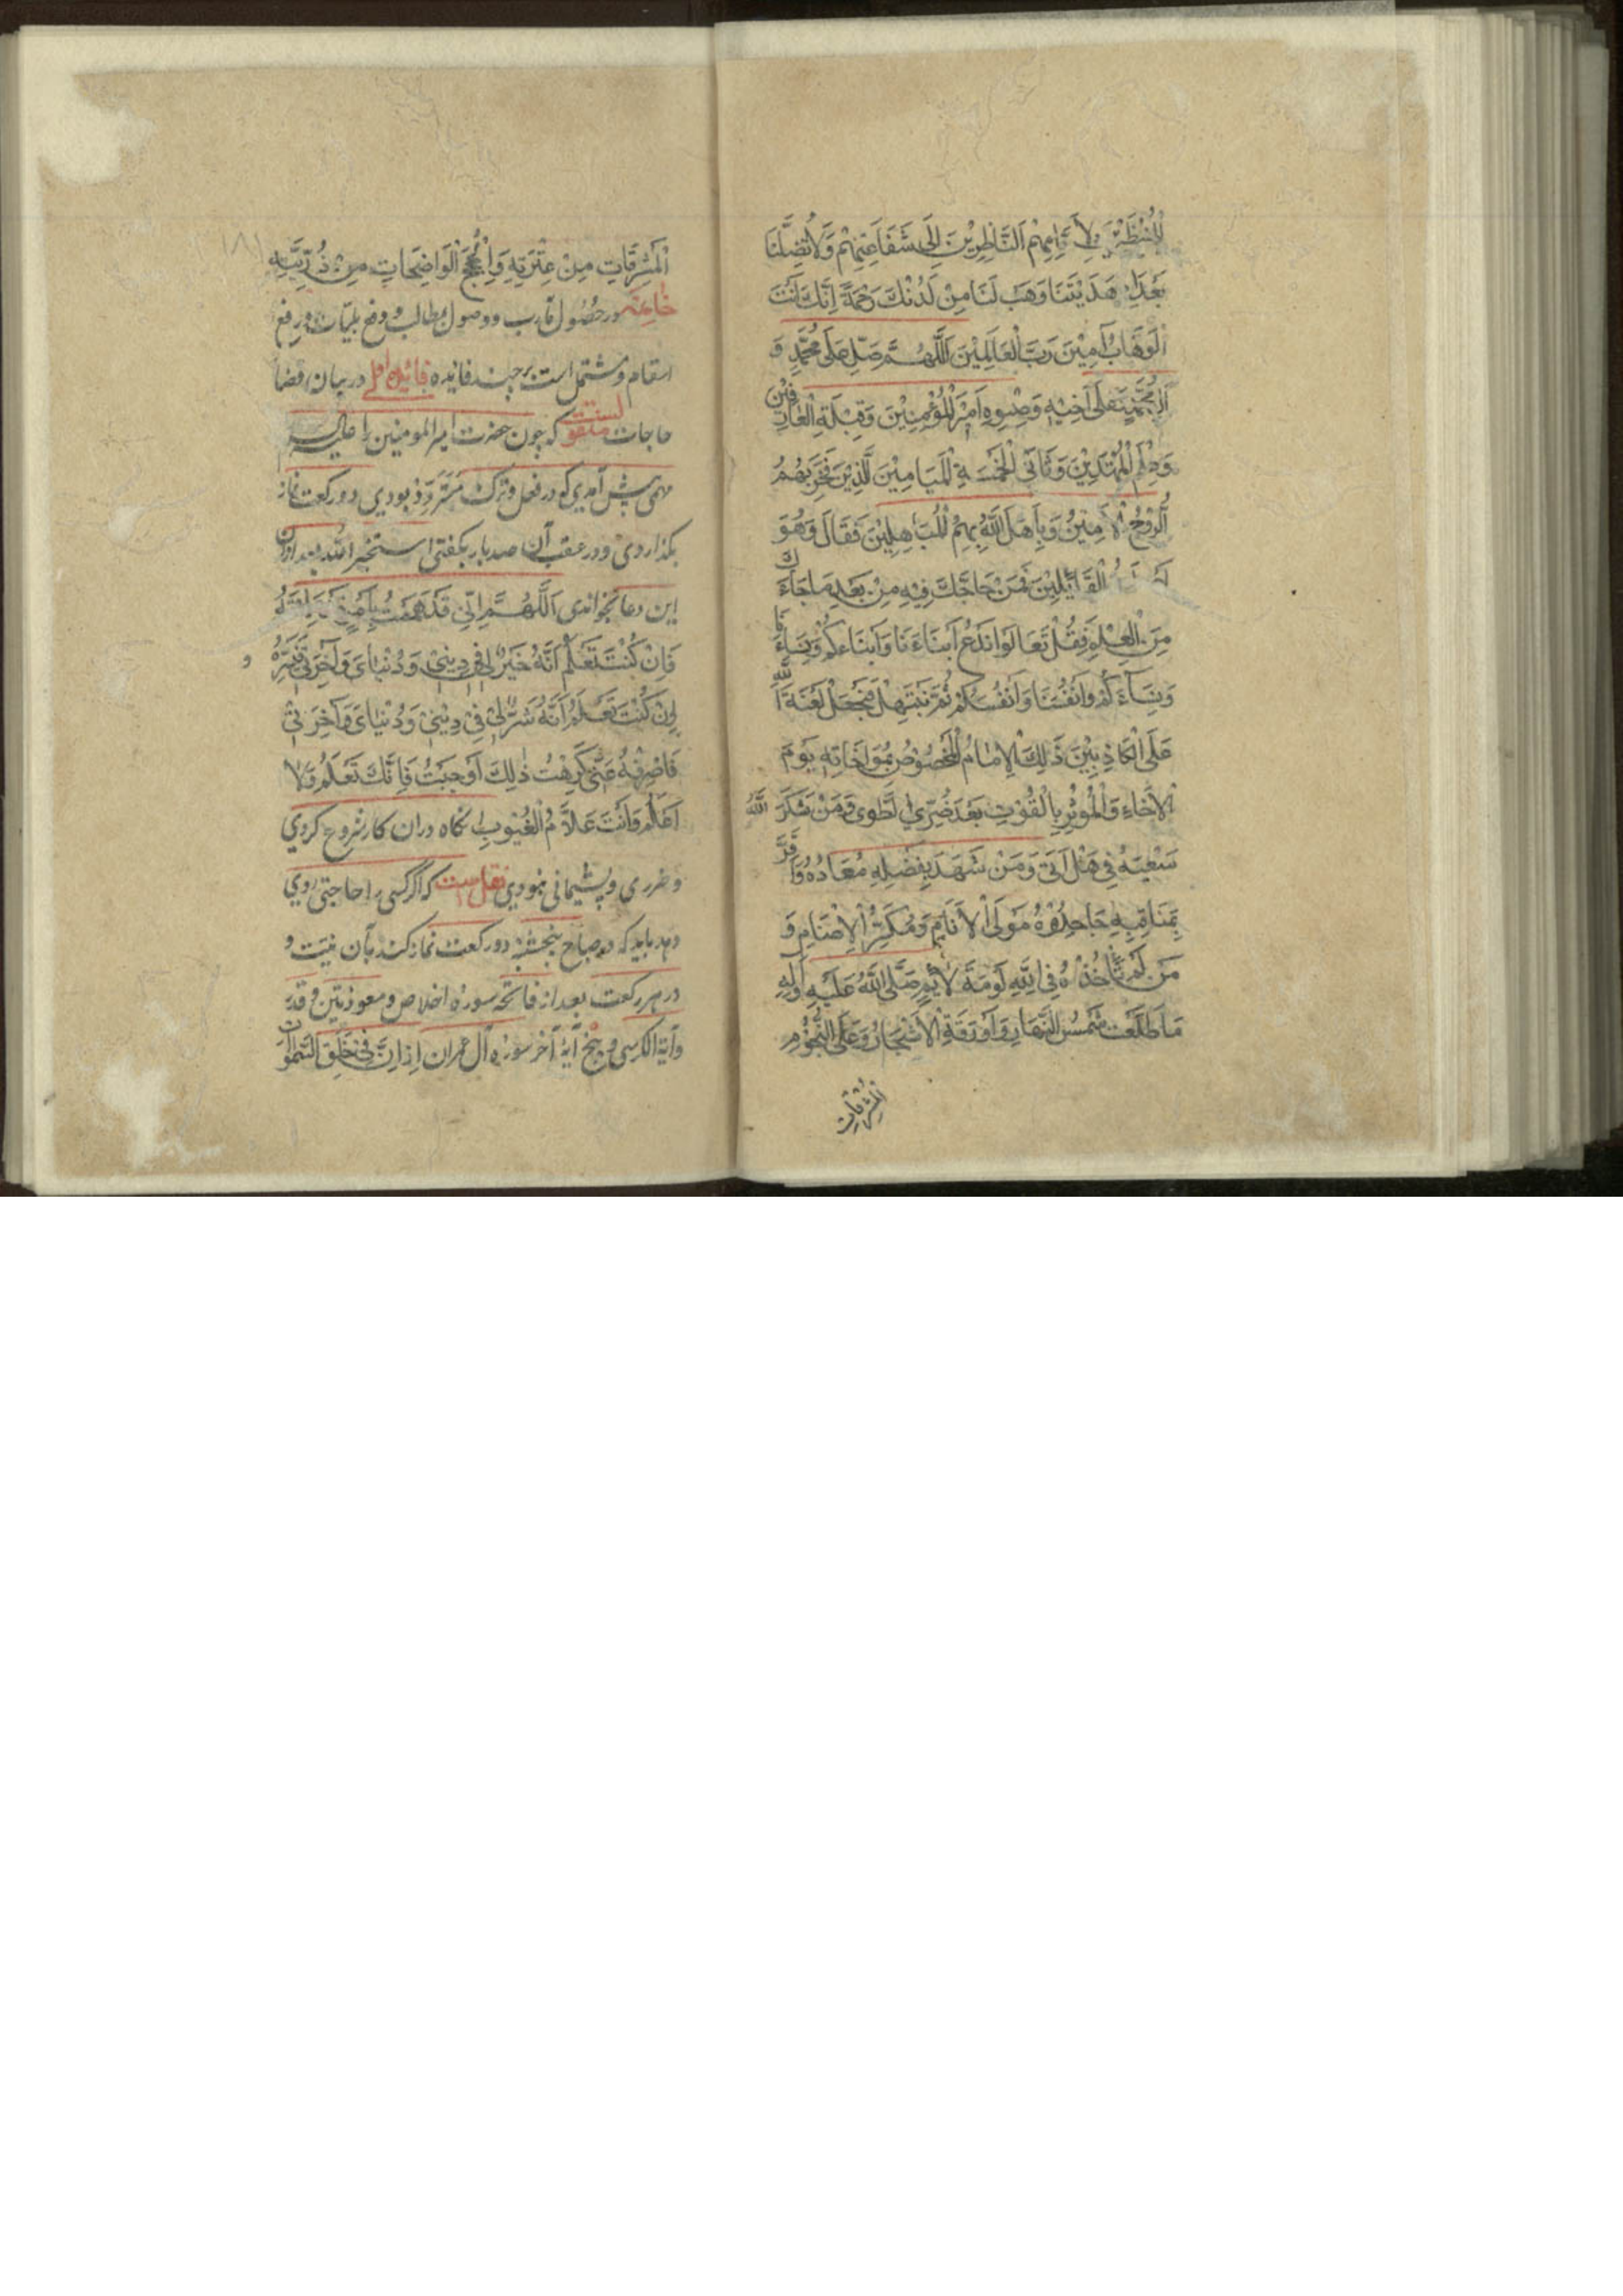 الْمُنْتَظَرِيْنَ لِاَيَّامِهِمْ اَلنَّاظِرِيْنَ اِلٰى شَفَاعَتِهِمْ وَلَا تُضِلَّنَا
بَعْدَ اِذْ هَدَيْتَنَا وَهَبْ لَنَا مِنْ لَدُنْكَ رَحْمَةً اِنَّكَ اَنْتَ
الْوَهَّابُ آمِيْنَ رَبَّ الْعَالَمِيْنَ اَللّٰهُمَّ صَلِّ عَلٰى مُحَمَّدٍ وَ
آلِ مُحَمَّدٍ وَعَلٰى اَخِيْهِ وَصِنْوِهِ اَمِيْرِ الْمُؤْمِنِيْنَ وَقِبْلَةِ الْعَارِفِيْنَ
وَعَلَمِ الْمُهْتَدِيْنَ وَثَانِي الْخَمْسَةِ الْمَيَامِيْنَ الَّذِيْنَ فَخَرَ بِهِمُ
الرُّوْحُ الْاَمِيْنُ وَبَاهَلَ اللّٰهُ بِهِمُ الْمُبَاهِلِيْنَ فَقَالَ وَهُوَ
الْقَائِلِيْنَ فَمَنْ حَاجَّكَ فِيْهِ مِنْ بَعْدِ مَا جَاءَكَ
مِنَ الْعِلْمِ فَقُلْ تَعَالَوْا نَدْعُ اَبْنَاءَنَا وَاَبْنَاءَكُمْ وَنِسَاءَنَا
وَنِسَاءَكُمْ وَاَنْفُسَنَا وَاَنْفُسَكُمْ ثُمَّ نَبْتَهِلْ فَنَجْعَلْ لَعْنَةَ اللّٰهِ
عَلَى الْكَاذِبِيْنَ ذٰلِكَ الْاِمَامُ الْمَخْصُوْصُ بِمُوَاخَاتِهِ يَوْمَ
الْاِخَاءِ وَالْمُؤْثِرِ بِالْقُوْتِ بَعْدَ ضُرِّي الطَّوٰى وَمَنْ شَكَرَ اللّٰهُ
سَعْيَهُ فِي هَلْ اَتٰى وَمَنْ شَهِدَ بِفَضْلِهِ مُعَادُوْهُ وَاَقَرَّ
بِمَنَاقِبِهِ جَاحِدُوْهُ مَوْلَى الْاَنَامِ وَمُكَسِّرُ الْاَصْنَامِ وَ
مَنْ لَمْ تَأْخُذْهُ فِي اللّٰهِ لَوْمَةُ لَائِمٍ صَلَّى اللّٰهُ عَلَيْهِ وَآلِهِ
مَا طَلَعَتْ شَمْسُ النَّهَارِ وَاَوْرَقَتِ الْاَشْجَارُ وَعَلَى النُّجُوْمِ
الْمُشْرِقَاتِ
١٨١
الْمُشْرِقَاتِ مِنْ عِتْرَتِهِ وَالْحُجَجِ الْوَاضِحَاتِ مِنْ ذُرِّيَّتِهِ
خاتمه در حصول مآرب و وصول مطالب و دفع بليّات و رفع
اسقام و مشتمل است بر چند فائده فائدهٔ اول در بيان قضا
حاجات منقولست كه چون حضرت امير المومنين را عليه
مهمى پيش آمدي كه در فعل و ترك متردّد بودي دو ركعت نماز
بگذاردى و در عقب آن صد بار بگفتى استخير الله بعد ازان
اين دعا بخواندى اَللّٰهُمَّ اِنِّي قَدْ هَمَمْتُ بِاَمْرٍ
فَاِنْ كُنْتَ تَعْلَمُ اَنَّهُ خَيْرٌ لِي فِي دِيْنِي وَدُنْيَايَ وَآخِرَتِي فَيَسِّرْهُ و
اِنْ كُنْتَ تَعْلَمُ اَنَّهُ شَرٌّ لِي فِي دِيْنِي وَدُنْيَايَ وَآخِرَتِي
فَاصْرِفْهُ عَنِّي كَرِهْتُ ذٰلِكَ اَوْ حَبَبْتُ فَاِنَّكَ تَعْلَمُ وَلَا
اَعْلَمُ وَاَنْتَ عَلَّامُ الْغُيُوْبِ آنگاه دران كار شروع كردي
و ضررى و پشيمانى نبودي نقل است كه اگر كسى را حاجتى روي
دهد بايد كه در صباح پنجشنبه دو ركعت نماز كند بآن نيت و
در هر ركعت بعد از فاتحه سوره اخلاص و معوذتين و قدر
و آية الكرسى و پنج آيهٔ آخر سوره آل عمران اِنَّ فِي خَلْقِ السَّمٰوَاتِ